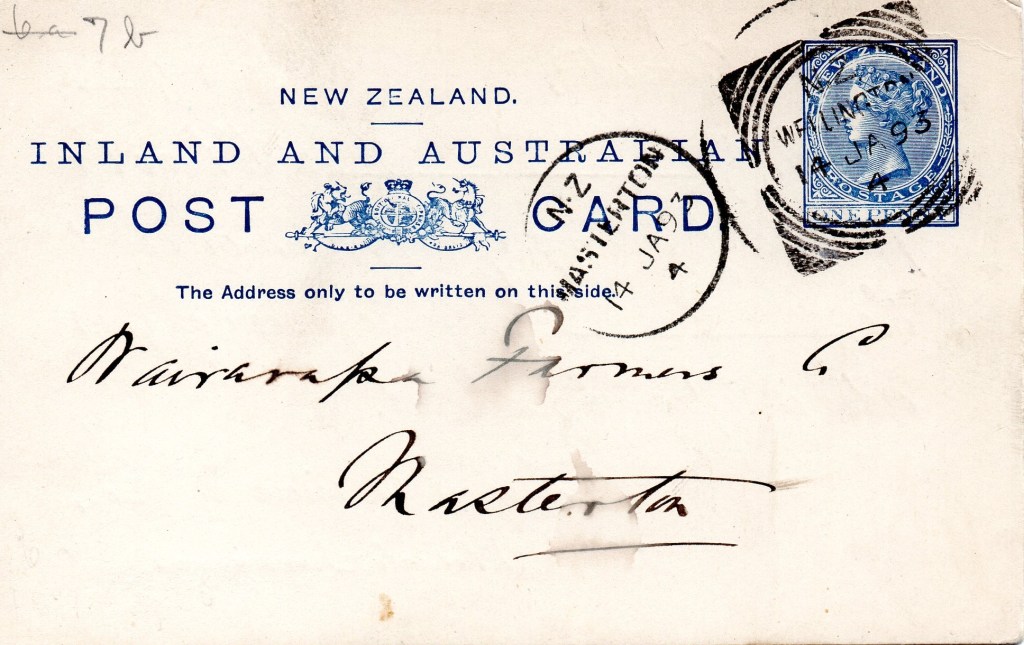 6a 7b
NEW ZEALAND.
INLAND AND AUSTRALIAN
POST CARD.
The Address only to be written on this side.
NEW ZEALAND
POSTAGE
ONE PENNY
N.Z
WELLINGTON
14 JA 93
4
N.Z
MASTERTON
14 JA 93
4
Wairarapa Farmers C
Masterton